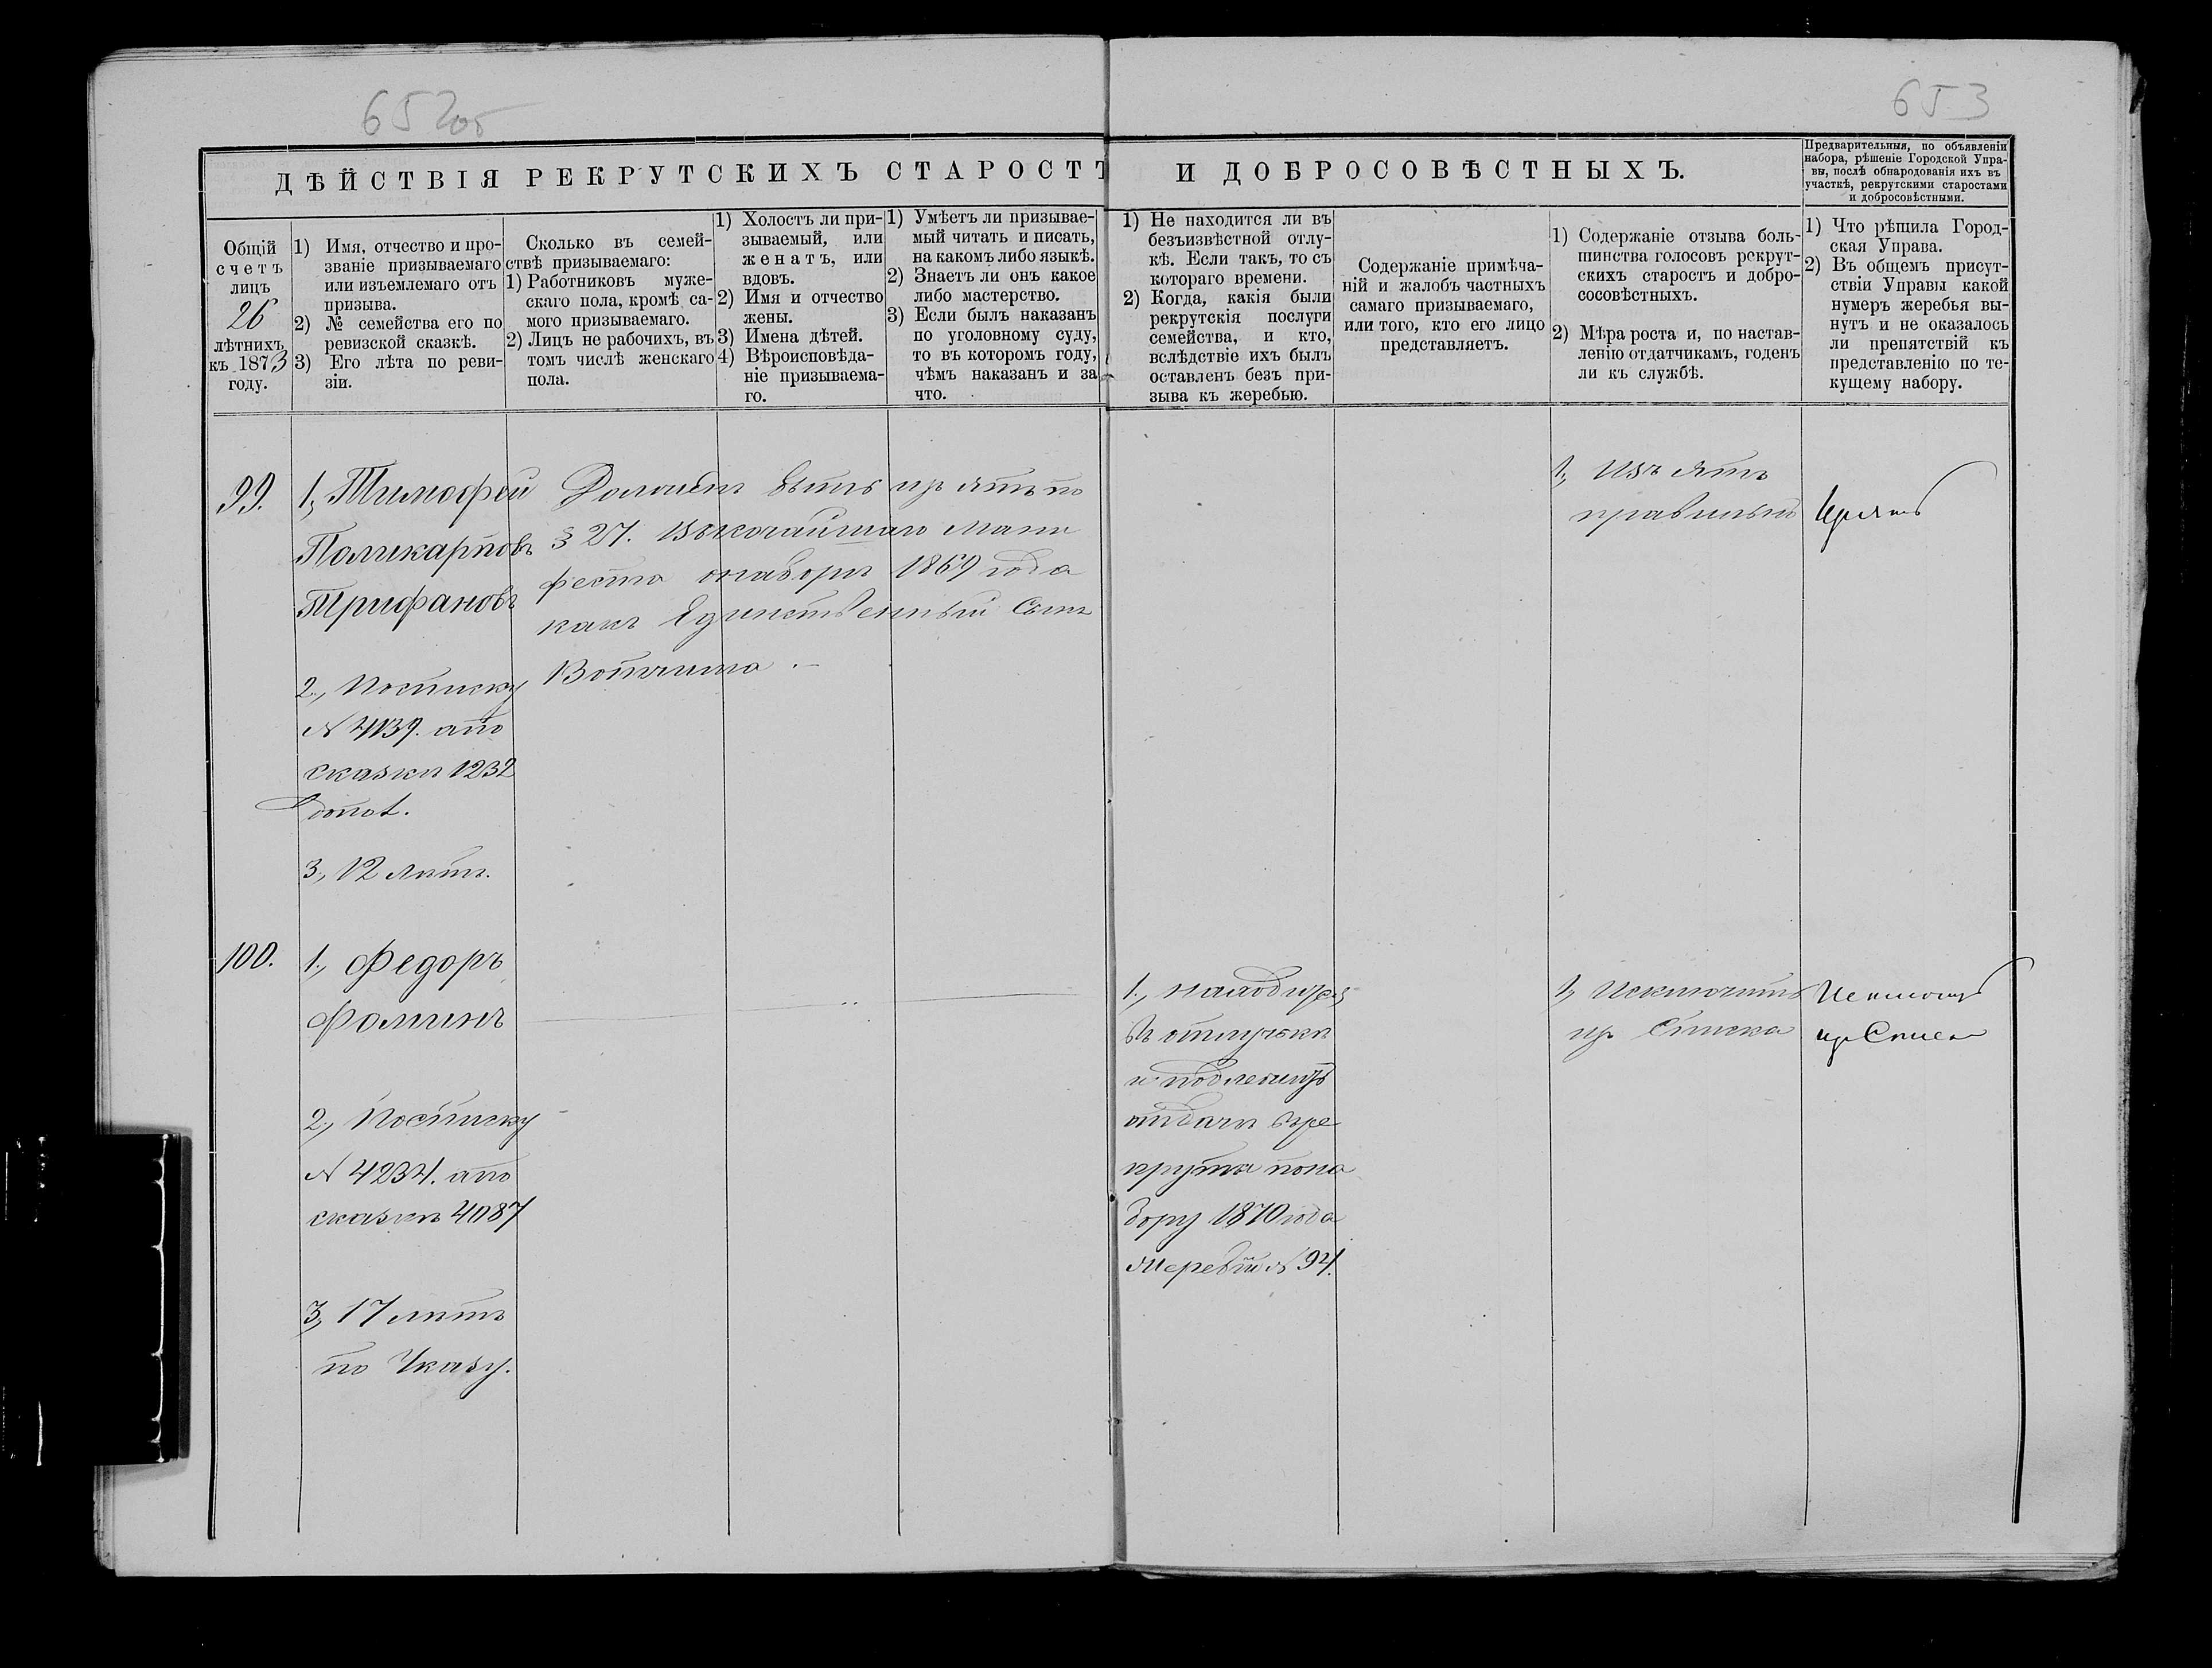 652об
653
ДѢЙСТВІЯ РЕКРУТСКИХЪ СТАРОСТЪ И ДОБРОСОВѢСТНЫХЪ.
Предварительныя, по объявленіи
набора, рѣшеніе Городской Упра-
вы, послѣ обнародованія ихъ въ
участкѣ, рекрутскими старостами
и добросовѣстными.
Общій
счетъ
лицъ
26
лѣтнихъ
къ 1873
году.
1) Имя, отчество и про-
званіе призываемаго
или изъемлемаго отъ
призыва.
2) № семейства его по
ревизской сказкѣ.
3) Его лѣта по реви-
зіи.
Сколько въ семей-
ствѣ призываемаго:
1) Работниковъ муже-
скаго пола, кромѣ са-
мого призываемаго.
2) Лицъ не рабочихъ, въ
томъ числѣ женскаго
пола.
1) Холостъ ли при-
зываемый, или
женатъ, или
вдовъ.
2) Имя и отчество
жены.
3) Имена дѣтей.
4) Вѣроисповѣда-
ніе призываема-
го.
1) Умѣетъ ли призывае-
мый читать и писать,
на какомъ либо языкѣ.
2) Знаетъ ли онъ какое
либо мастерство.
3) Если былъ наказанъ
по уголовному суду,
то въ которомъ году,
чѣмъ наказанъ и за
что.
1) Не находится ли въ
безъизвѣстной отлу-
кѣ. Если такъ, то съ
котораго времени.
2) Когда, какія были
рекрутскія послуги
семейства, и кто,
вслѣдствіе ихъ былъ
оставленъ безъ при-
зыва къ жеребью.
Содержаніе примѣча-
ній и жалобъ частныхъ
самаго призываемаго,
или того, кто его лицо
представляетъ.
1) Содержаніе отзыва боль-
шинства голосовъ рекрут-
скихъ старостъ и добро-
сосовѣстныхъ.
2) Мѣра роста и, по настав-
ленію отдатчикамъ, годенъ
ли къ службѣ.
1) Что рѣшила Город-
ская Управа.
2) Въ общемъ присут-
ствіи Управы какой
нумеръ жеребья вы-
нутъ и не оказалось
ли препятствій къ
представленію по те-
кущему набору.
99.
1, Тимофей
Поликарповъ
Трифановъ
2., Посписку
№ 4139. апо
сказкѣ 1232
допол.
3, 12 лѣтъ.
Долженъ быть изъятъ по
§ 27. Высочайшаго Мани
феста онаборѣ 1869 года
какъ Единственный Сынъ
Вотчима.
1, Изъять
правильно
Изъять
100.
1., Федоръ
Фоминъ
2., Посписку
№ 4234. апо
сказкѣ 4087
3, 17 лѣтъ
по Указу.
1., находится
въ отлучкѣ
и подлежитъ
отдачѣ вре
круты пона
бору 1870 года
жеребій № 94.
1, Исключить
изъ Списка
Исключить
изъ Списка